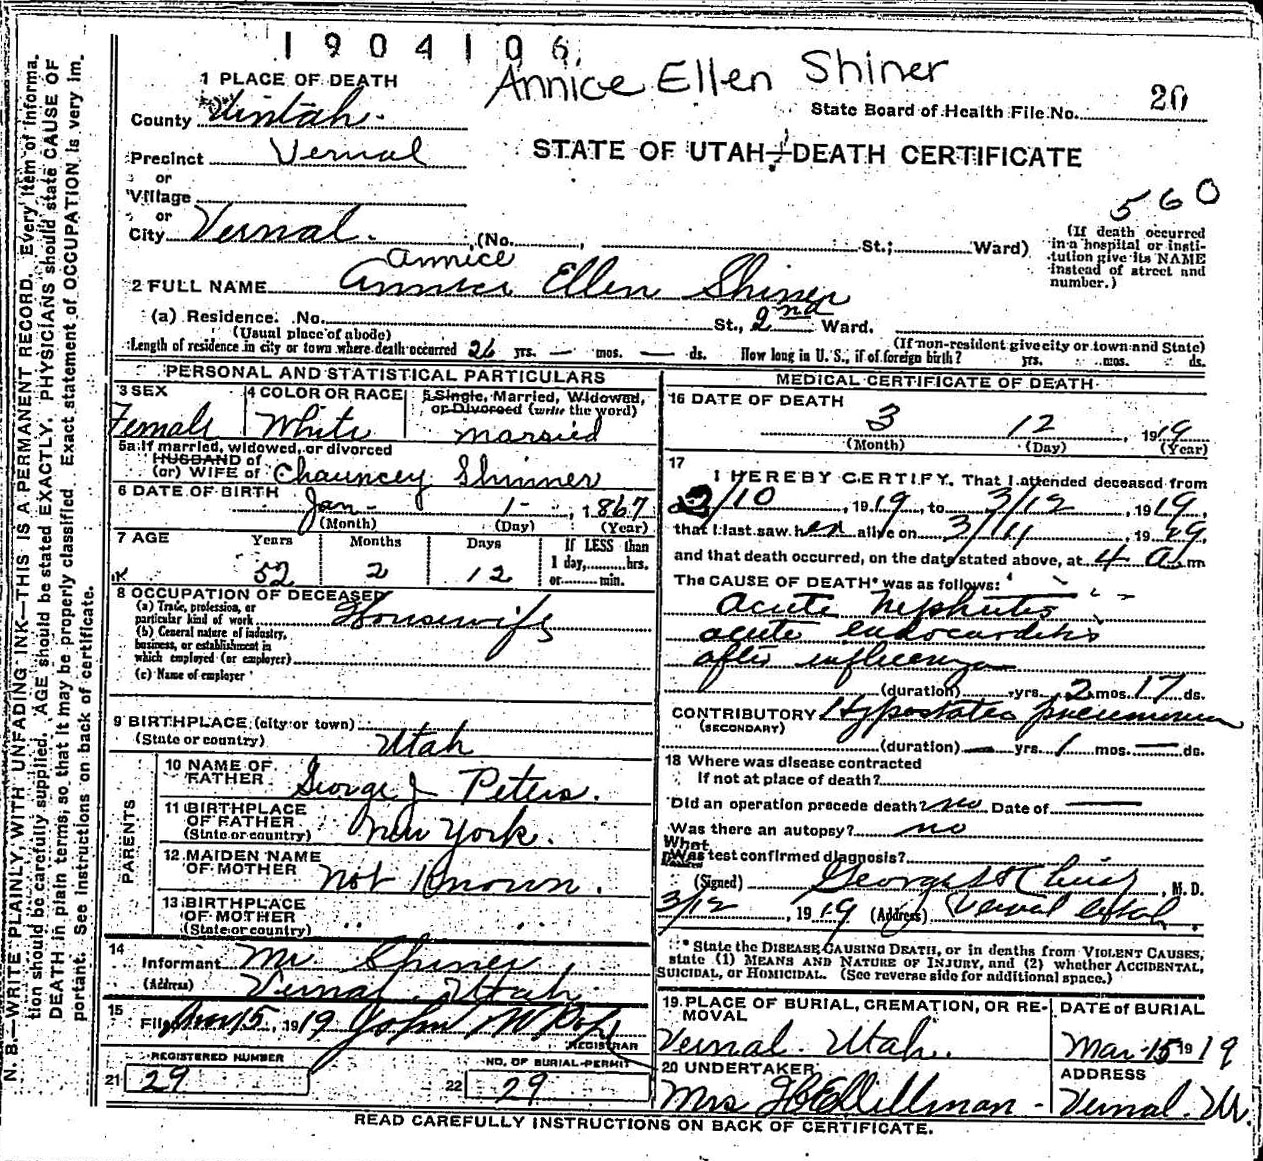 1904106.
Annice Ellen Shiner
1 PLACE OF DEATH
State Board of Health File No. 20
County Uintah.
Precinct Vernal
STATE OF UTAH—DEATH CERTIFICATE
or
Village
560
or
City Vernal. (No. , St.; Ward)
(If death occurred in a hospital or institution give its NAME instead of street and number.)
Annice
2 FULL NAME Annice Ellen Shiner
(a) Residence. No. St., 2nd Ward.
(Usual place of abode) (If non-resident give city or town and State)
Length of residence in city or town where death occurred 26 yrs. — mos. — ds. How long in U. S., if of foreign birth? yrs. mos. ds.
PERSONAL AND STATISTICAL PARTICULARS
3 SEX Female
4 COLOR OR RACE White
5 Single, Married, Widowed, or Divorced (write the word) married
5a If married, widowed, or divorced
HUSBAND of
(or) WIFE of Chauncey Shinner
6 DATE OF BIRTH Jan - 1 - , 1867
(Month) (Day) (Year)
7 AGE Years Months Days If LESS than 1 day, hrs. or min.
52 2 12
8 OCCUPATION OF DECEASED
(a) Trade, profession, or particular kind of work Housewife
(b) General nature of industry, business, or establishment in which employed (or employer)
(c) Name of employer
9 BIRTHPLACE (city or town)
(State or country) Utah
PARENTS
10 NAME OF FATHER George J Peters.
11 BIRTHPLACE OF FATHER (State or country) New York.
12 MAIDEN NAME OF MOTHER Not Known.
13 BIRTHPLACE OF MOTHER (State or country) " "
14 Informant Mr Shiner
(Address) Vernal, Utah
15 Filed Mar 15, 1919 John N
REGISTRAR
REGISTERED NUMBER NO. OF BURIAL PERMIT
21 29 22 29
MEDICAL CERTIFICATE OF DEATH
16 DATE OF DEATH
3 12, 1919
(Month) (Day) (Year)
17 I HEREBY CERTIFY, That I attended deceased from
2/10, 1919, to 3/12, 1919,
that I last saw her alive on 3/11, 1919,
and that death occurred, on the date stated above, at 4 a.m
The CAUSE OF DEATH* was as follows:
acute Nephritis
acute endocarditis
after influenza
(duration) yrs. 2 mos. 17 ds.
CONTRIBUTORY Hypostatic pneumonia
(SECONDARY)
(duration) — yrs. 1 mos. — ds.
18 Where was disease contracted
if not at place of death?
Did an operation precede death? no Date of —
Was there an autopsy? no
What test confirmed diagnosis?
(Signed) George , M. D.
3/12, 1919 (Address) Vernal Utah.
* State the DISEASE CAUSING DEATH, or in deaths from VIOLENT CAUSES,
state (1) MEANS AND NATURE OF INJURY, and (2) whether ACCIDENTAL,
SUICIDAL, or HOMICIDAL. (See reverse side for additional space.)
19 PLACE OF BURIAL, CREMATION, OR REMOVAL Vernal. Utah.
DATE OF BURIAL Mar-15 1919
20 UNDERTAKER Mrs
ADDRESS Vernal. Ut.
READ CAREFULLY INSTRUCTIONS ON BACK OF CERTIFICATE.
N. B.—WRITE PLAINLY, WITH UNFADING INK—THIS IS A PERMANENT RECORD. Every item of information should be carefully supplied. AGE should be stated EXACTLY. PHYSICIANS should state CAUSE OF DEATH in plain terms, so that it may be properly classified. Exact statement of OCCUPATION is very important. See instructions on back of certificate.